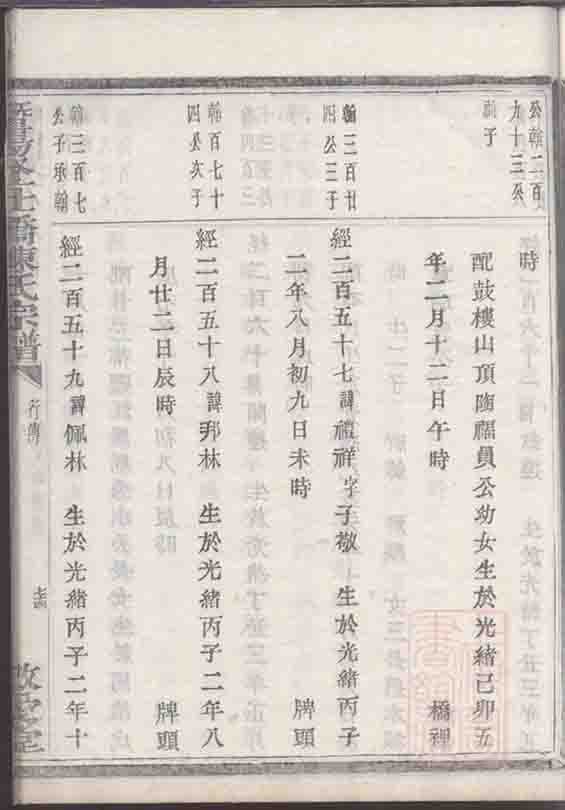 公翰二百
九十三公
嗣子
時
配鼓樓山頂陶福員公幼女生於光緒己卯五
年二月十二日午時 橋裡
翰三百廿
四公三子
經二百五十七諱禮祥字子敬 生於光緒丙子
二年八月初九日未時 牌頭
翰百七十
四公次子
經二百五十八諱邦林 生於光緒丙子二年八
月廿二日辰時 牌頭
翰三百七
公子承翰
經二百五十九諱佩林 生於光緒丙子二年十
橋陳氏宗譜
行傳
堂